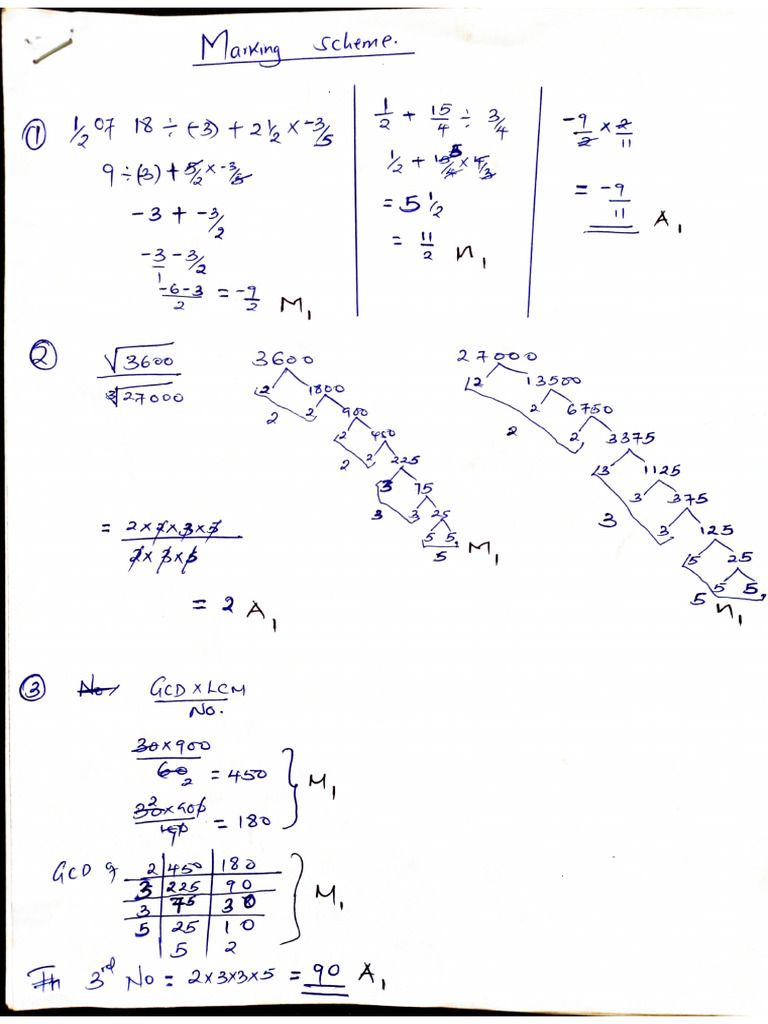 Marking Scheme.
① 1/2 of 18 ÷ (-3) + 2 1/2 × -3/5
9 ÷ (-3) + 5/2 × -3/5
-3 + -3/2
-3/1 - 3/2
-6-3/2 = -9/2 M1
1/2 + 15/4 ÷ 3/4
1/2 + 15/4 × 4/3
= 5 1/2
= 11/2 M1
-9/2 × 2/11
= -9/11 A1
② √3600 / ∛27000
3600
2 1800
2 900
2
2 450
2 225
2
3 75
3 25
3
5 5
5 M1
27000
2 13500
2 6750
2 3375
2
3 1125
3 375
3 125
3
5 25
5 5
5 M1
= 2×2×3×5 / 2×3×5
= 2 A1
③ No. GCD × LCM / No.
30×900 / 60 2 = 450
30×900 / 150 = 180 M1
GCD of 2 450 180
3 225 90
3 75 30 M1
5 25 10
5 2
3rd No = 2×3×3×5 = 90 A1